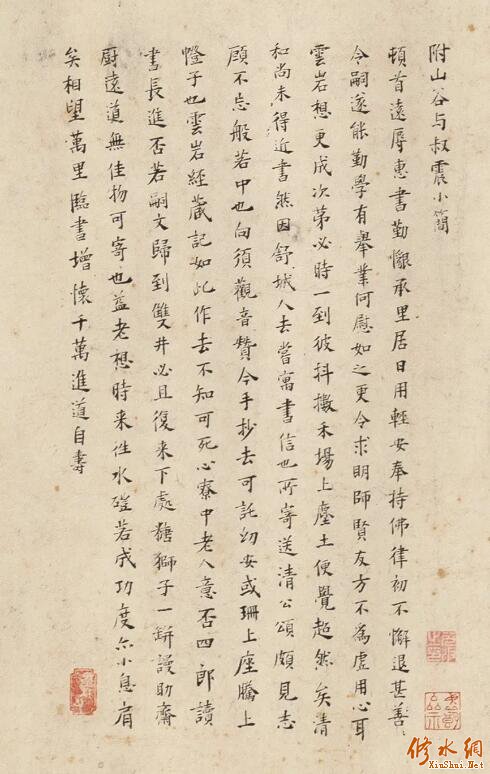 附山谷与叔震小简
頓首遠辱惠書勤懇承里居日用輕安奉持佛律初不懈退甚善
令嗣遂能勤學有舉業何慰如之更令求明師賢友方不爲虚用心耳
雲岩想更成次第必時一到彼抖擻禾場上塵土便覺超然矣清
和尚未得近書然因舒城人去嘗寓書信也所寄送清公頌頗見志
願不忘般若中也向須觀音贊今手抄去可託幼安或珊上座騰上
幀子也雲岩經藏記如此作去不知可死心寮中老人意否四郎讀
書長進否若嗣文歸到雙井必且復来下處糖獅子一缾謾助齋
厨遠道無佳物可寄也益老想時来往水磑若成功度亦小息肩
矣相望萬里臨書增懷千萬進道自壽
修水網
XiuShui.Net